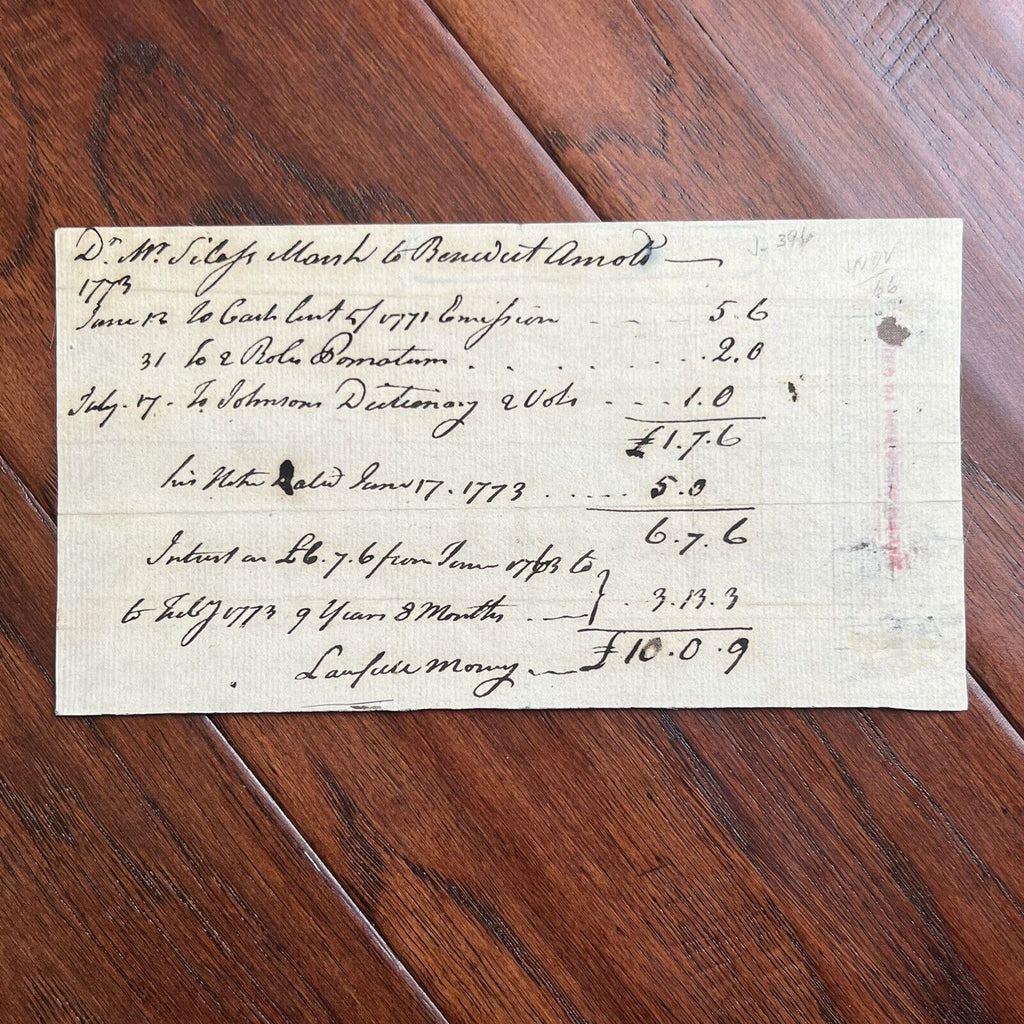 Dr. Mr. Silass Marsh to Benedict Arnold —
J- 396
NOV
66
1773
June 12 To Cash lent of 1771 Emission - - - 5.6
31 to 2 Rolls Pomatum . . . . . . . 2.0
July. 17. To Johnsons Dictionary 2 Vols - - - 1.0
£1.7.6
his Note Dated June 17. 1773 . . . . . 5.0
6.7.6
Interest on £6.7.6 from June 1763 to
to Feby 1773 9 Years 8 Months . — } . 3.13.3
Lawfull Money — £10.0.9